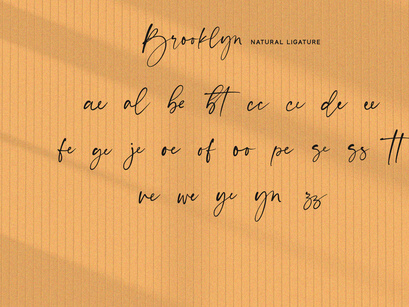 Brooklyn NATURAL LIGATURE
ae al be bt cc ce de ee
fe ge je oe of oo pe se ss tt
ve we ye yn zz